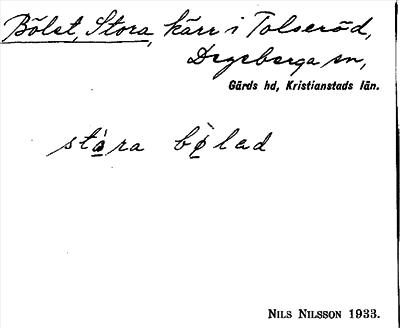 Bölet, Stora, kärr i Tolseröd,
Degeberga sn,
Gärds hd, Kristianstads län.
stòra bø̀lad
Nils Nilsson 1933.